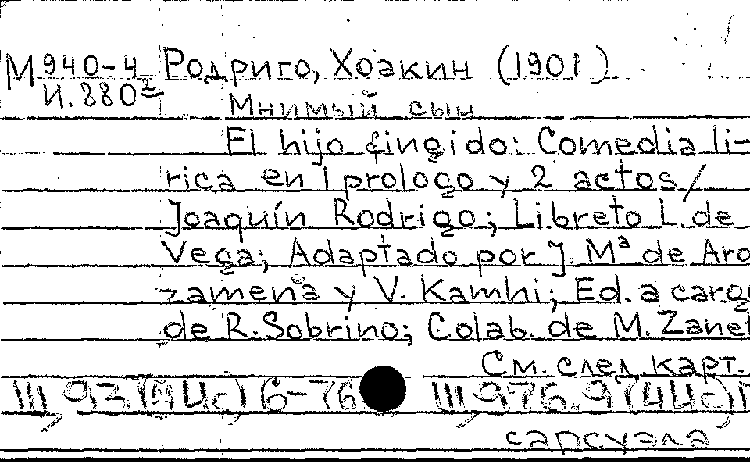 М 940-4 Родриго, Хоакин (1901 )
И.880²
Мнимый сын
El hijo fingido: Comedia li-
rica en 1 prologo y 2 actos/
Joaquín Rodrigo; Libreto L. de
Vega; Adaptado por J. Mª de Aro
zamena y V. Kamhi; Ed. a carg
de R. Sobrino; Colab. de M. Zanet
См. след. карт.
Ш, 93 (4Ис) 6-76 Ш, 976.9 (4Ис)
сарсуэла